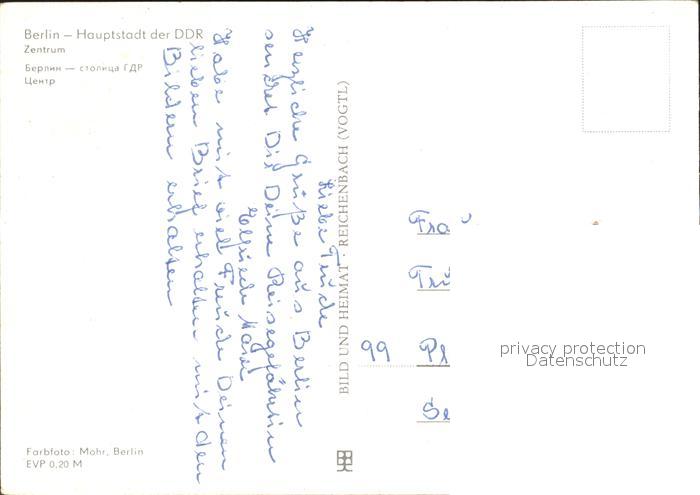 Berlin – Hauptstadt der DDR
Zentrum
Берлин — столица ГДР
Центр
Liebe Trude
Herzliche Grüße aus Berlin
sendet Dir Deine Reisegefährtin
Elfriede
Habe mit viel Freude Deinen
lieben Brief erhalten mit den
Bildern erhalten
BILD UND HEIMAT · REICHENBACH (VOGTL)
Fra
Trü
99 Pl
Se
privacy protection
Datenschutz
Farbfoto: Mohr, Berlin
EVP 0,20 M